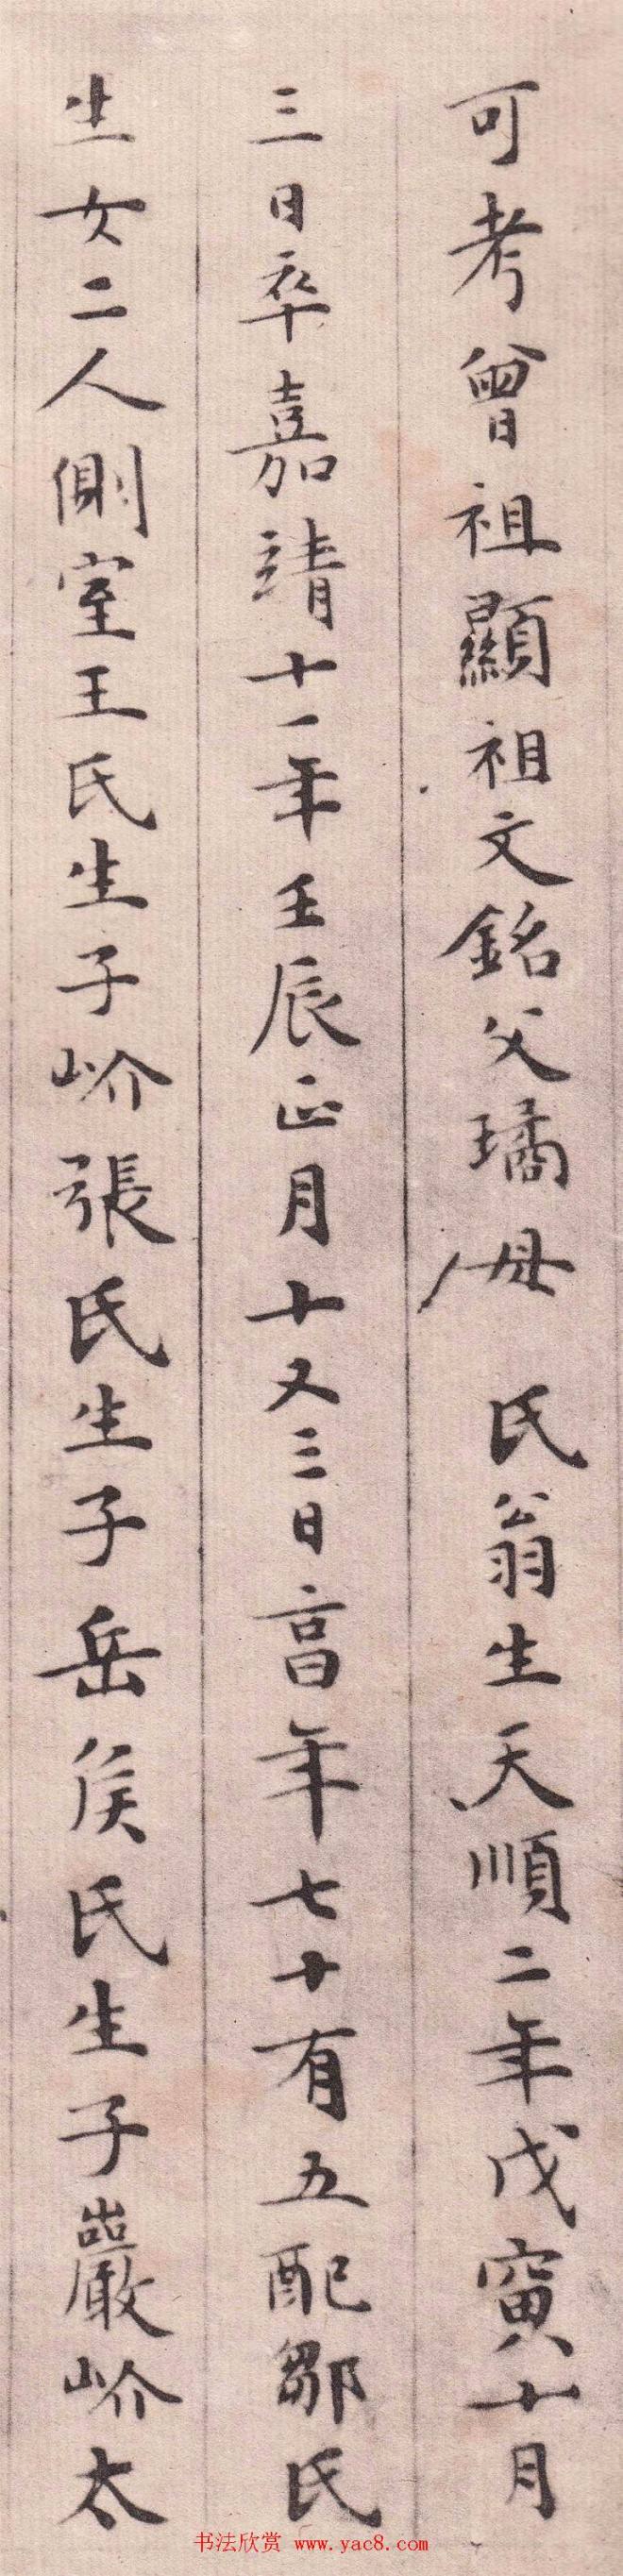 可考曾祖顯祖文銘父璚母氏翁生天順二年戊寅十月
三日卒嘉靖十一年壬辰正月十又三日享年七十有五配鄒氏
生女二人側室王氏生子岕張氏生子岳侯氏生子巖岕太
书法欣赏 www.yac8.com